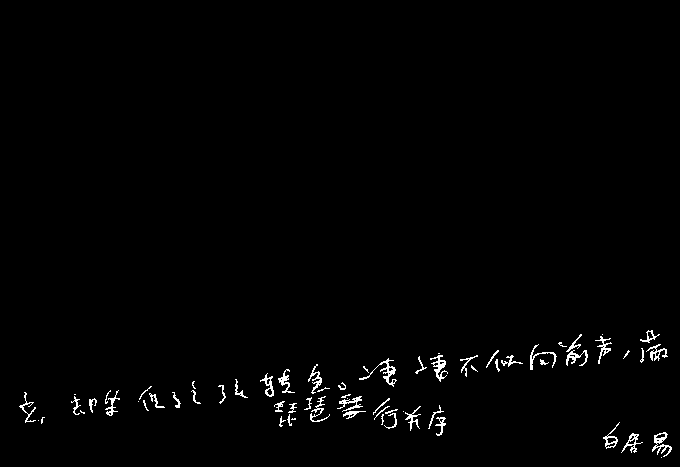 立，却坐促弦弦转急。凄凄不似向前声，满
琵琶琴行并序
白居易